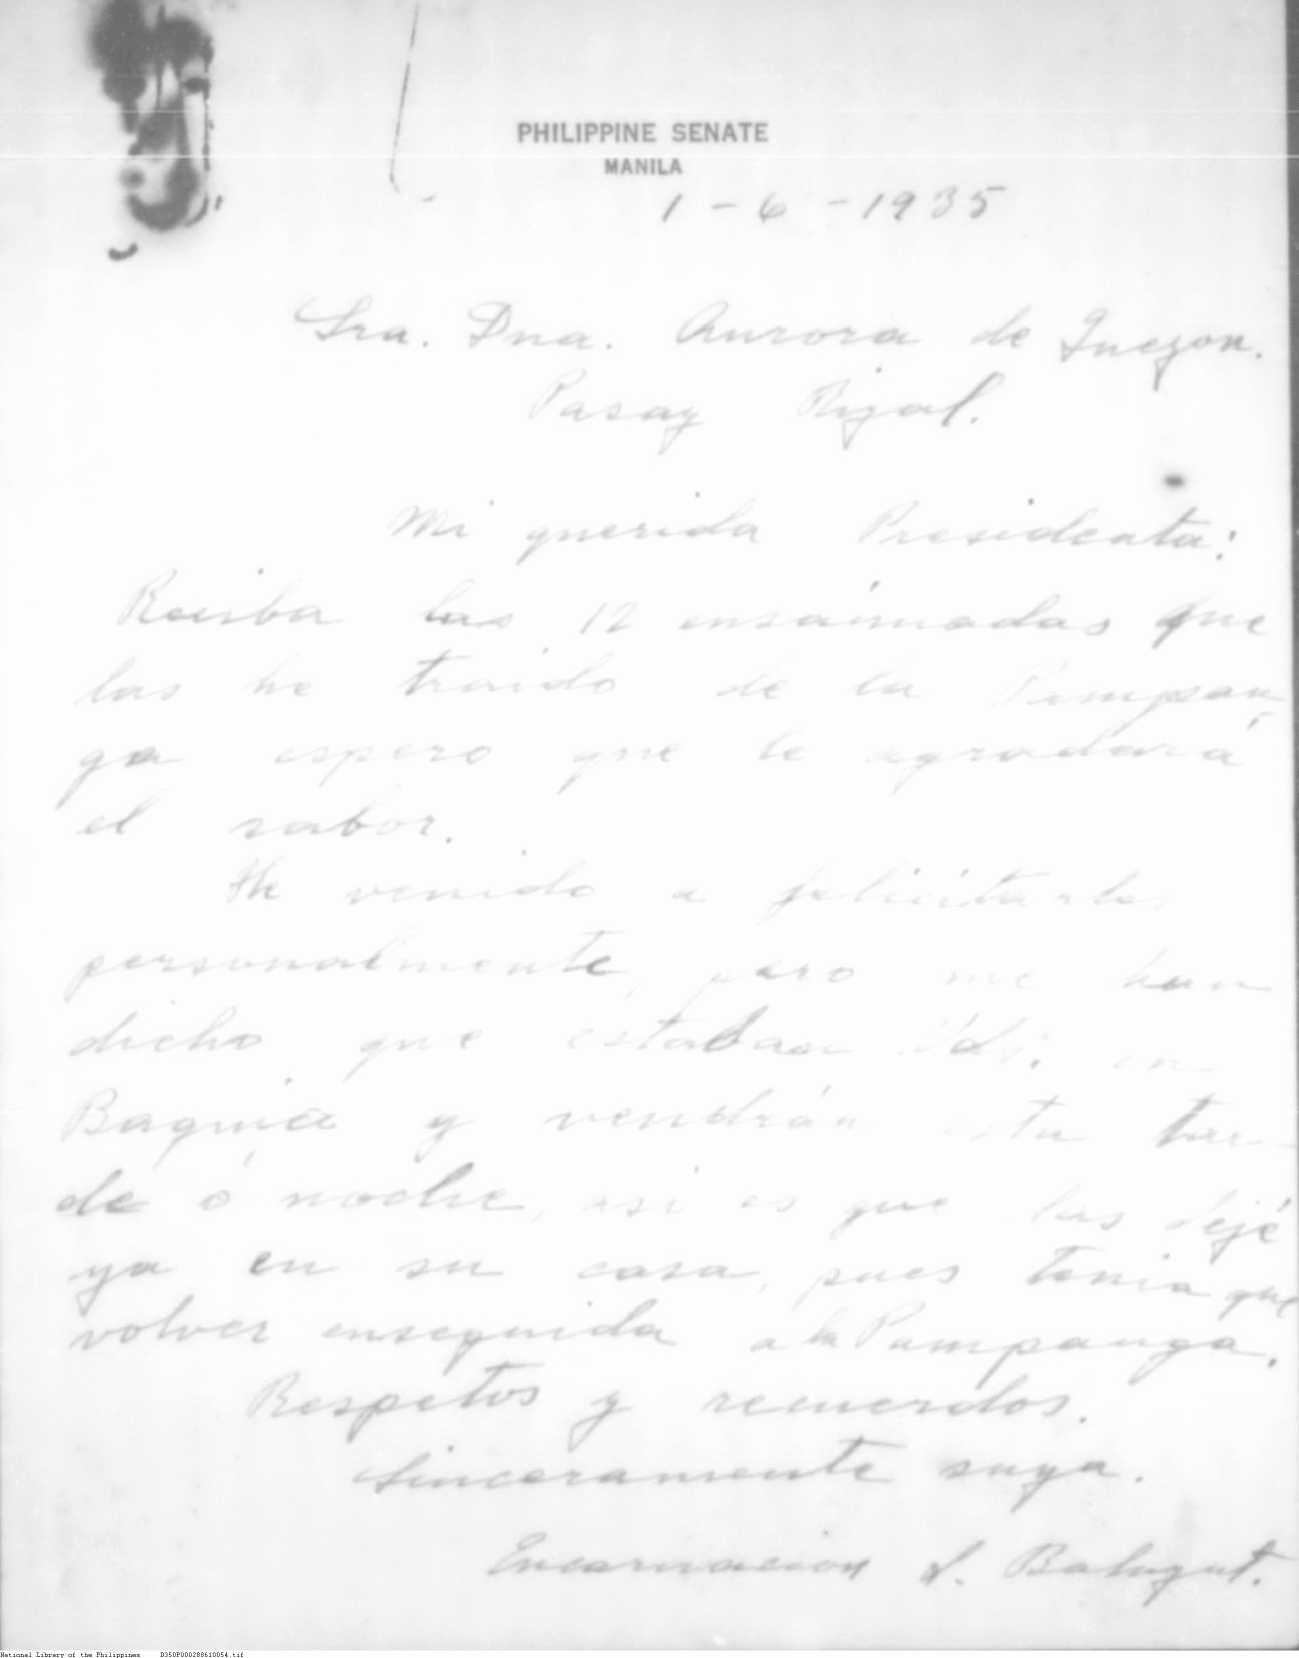 PHILIPPINE SENATE
MANILA
1 - 6 - 1935
Sra. Dna. Aurora de Quezon.
Pasay Rizal.
Mi querida Presidenta:
Reciba las 12 ensaimadas que
las he traido de la Pampan
ga espero que le agradará
el sabor.
He venido a felicitarle
personalmente, pero me han
dicho que estaban Uds. en
Baguio y vendrán esta tar
de ó noche, asi es que las dejé
ya en su casa, pues tenia que
volver enseguida a la Pampanga.
Respetos y recuerdos.
Sinceramente suya.
Encarnacion S. Baluyut.
National Library of the Philippines D350P000288610054.tif